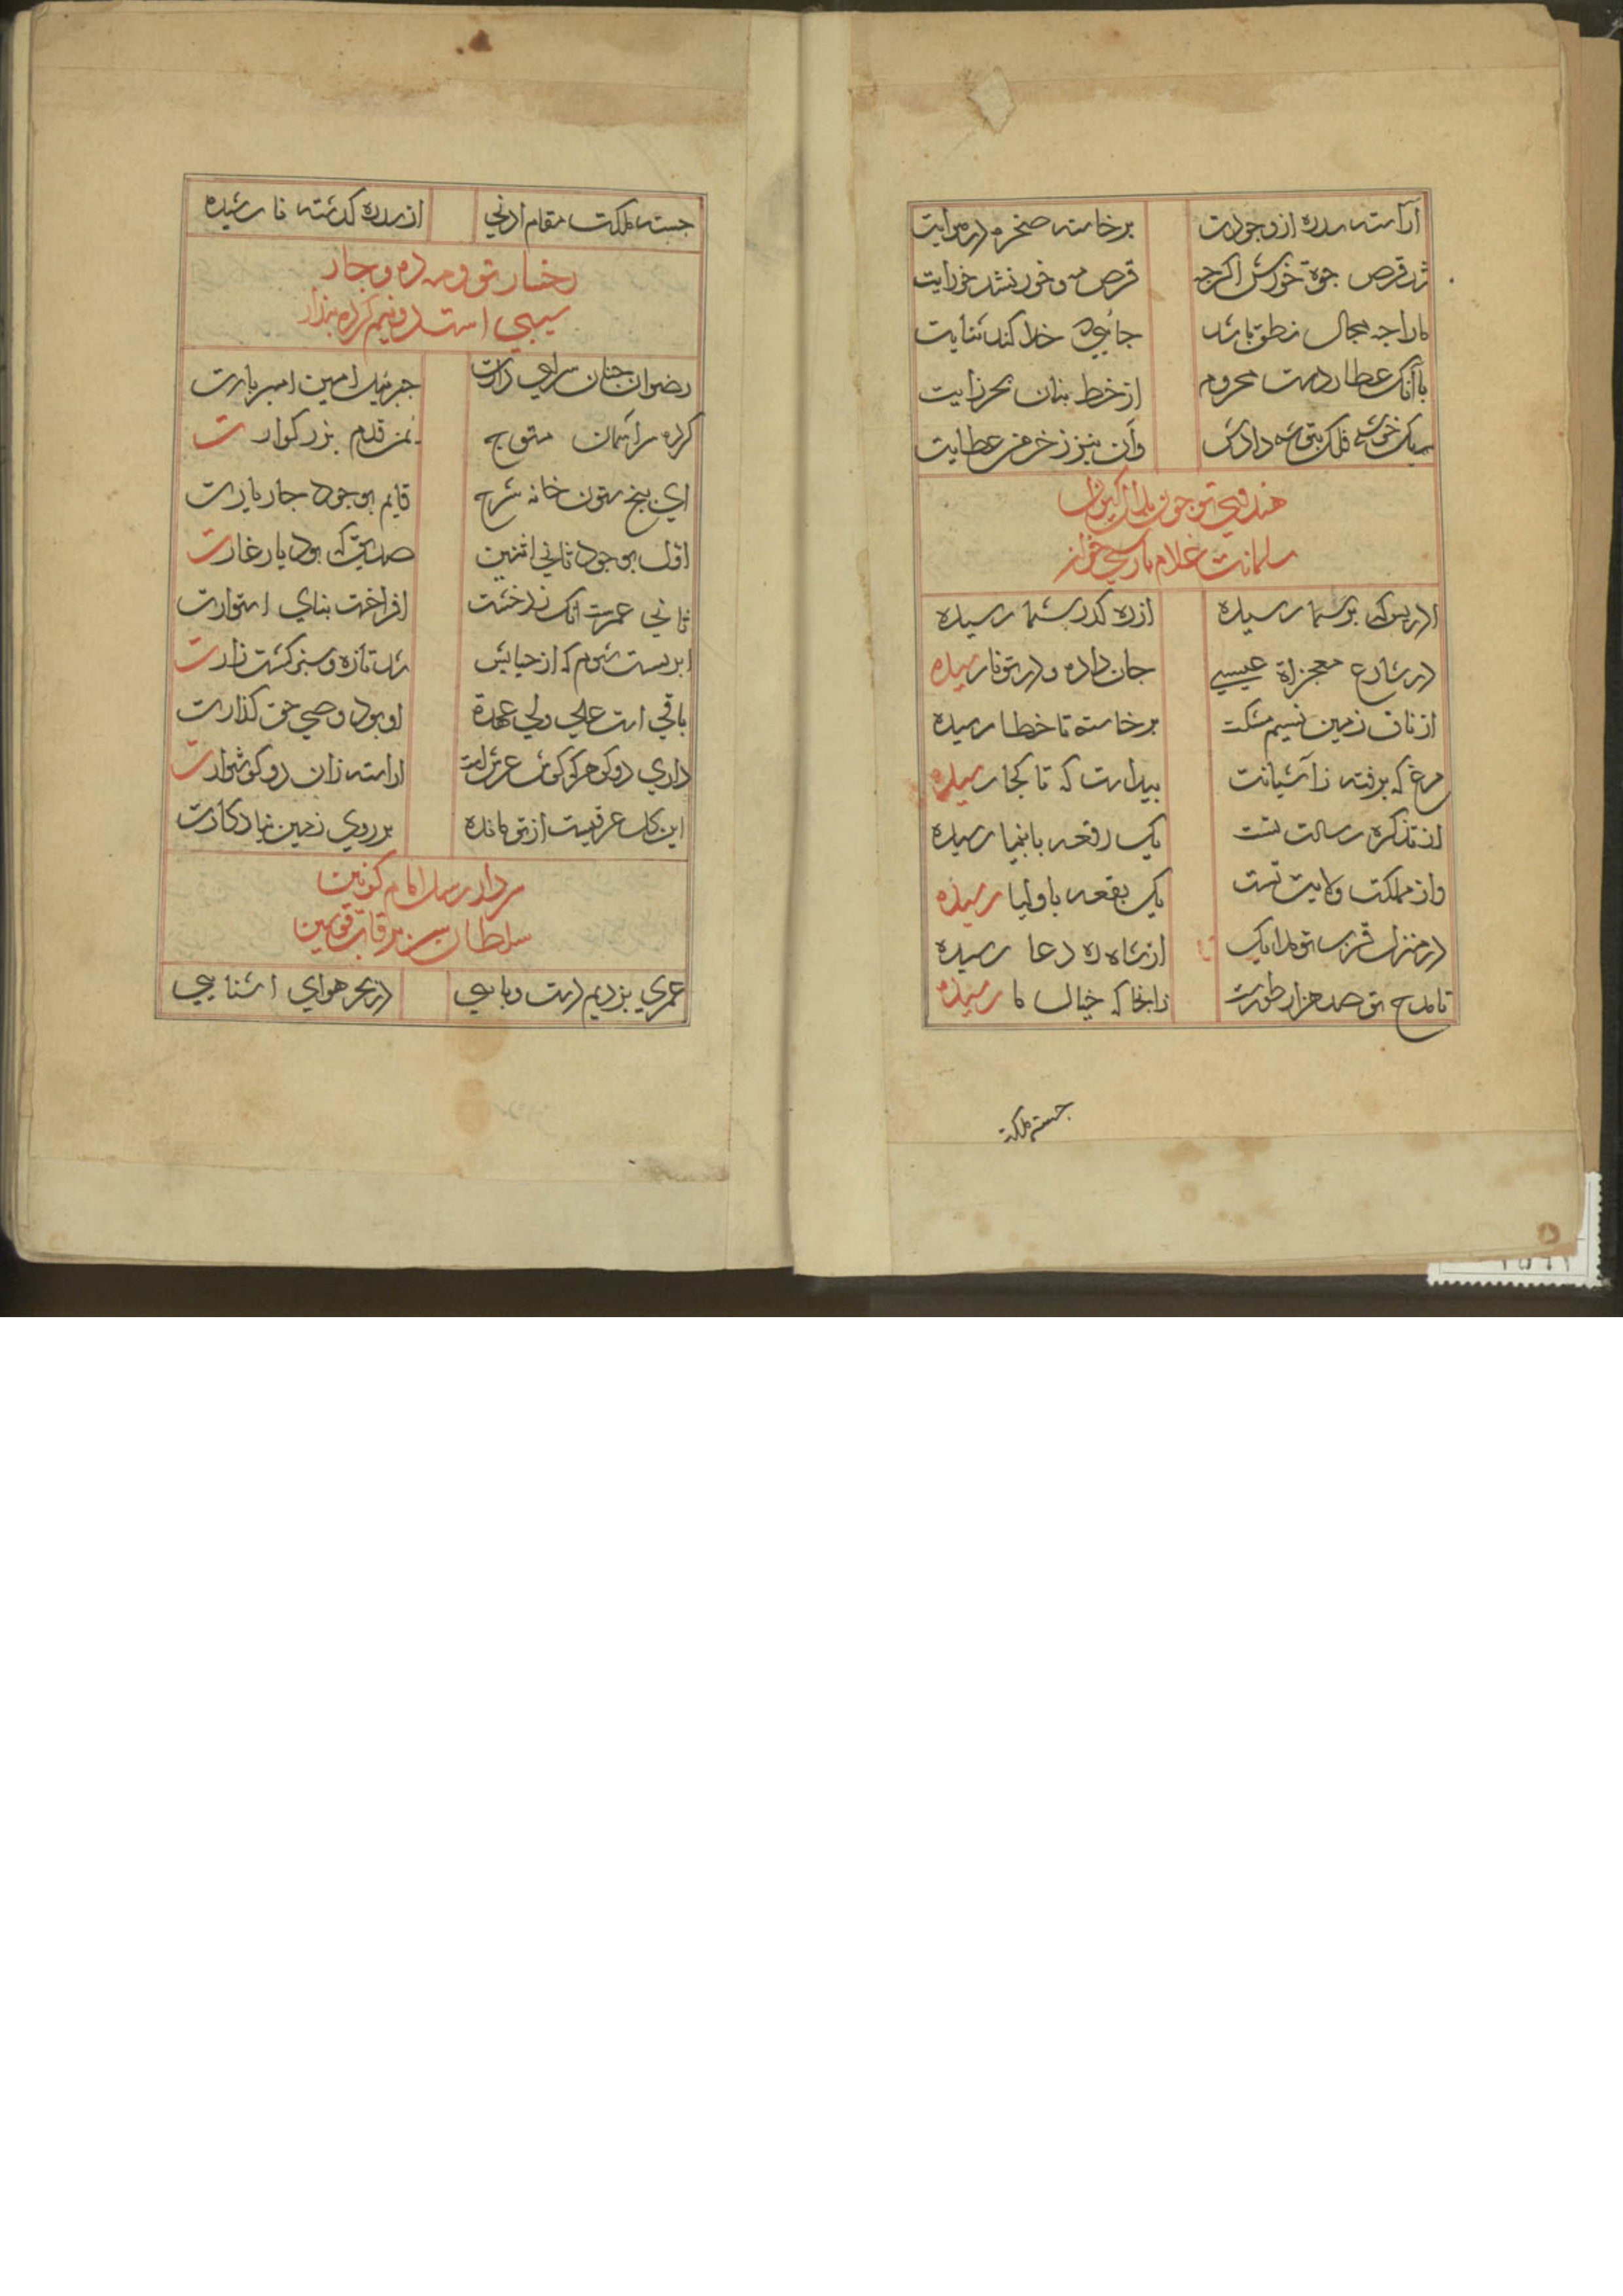 آراسته سدره از وجودت برخاسته صخره در هوایت
شد قرص جوۀ خورش اکرچه قرص مه و خور نشد خورایت
ما را چه مجال نطق باشد جایی که خدا کند ثنایت
با آنک عطاردست محروم از خط بنان بحرزایت
یک خوشه فلک بتوشه دادش وآن نیز ز خرمن عطایت
هندوی تو چون بلال کیوان
سلمانت غلام پارسی خوان
ادریس که بر سما رسیده از ره کذر شما رسیده
در شارع معجزاة عیسی جان داده و در تو نارسیده
از ناف زمین نسیم مشکت برخاسته تا خطا رسیده
مرغ که برفته ز آشیانت پیداست که تا کجا رسیده
از تذکره رسالت تست یک رقعه بانبیا رسیده
واز مملکت ولایت تست یک بقعه باولیا رسیده
در منزل قرب تو ملایک از شاه ره دعا رسیده
تا مدح تو صد هزار طورست ز انجا که خیال ما رسیده
جسته ملکت
جسته ملکت مقام ادنی از سدره کذشته نا رسیده
رخسار تو و مه ده و چار
سیبی است دو نیم کرده پندار
رضوان جنان سرای دارت جبرئیل امین امیر بارت
کرده سر آسمان متوج یمن قدم بزرکوارت
ای پنج ستون خانه شرع قایم بوجود چار یارت
اول بوجود ثانی اثنین صدیق که بود یار غارت
ثانی عمرست آنک ز درخشت افراخت بنای استوارت
ابریست سوم که از حیایش شد تازه و سبز کشت زارت
باقی است علی ولی عهدة او بود وصی حق کذارت
داری دو کوهر که کوش عرش است اراسته زان دو کوشوارت
این کل عرقیست از تو مانده بر روی زمین بیادکارت
سردار رسل امام کونین
سلطان سریر قاب قوسین
عمری بزدیم دست و پایی در بحر هوای اشنایی